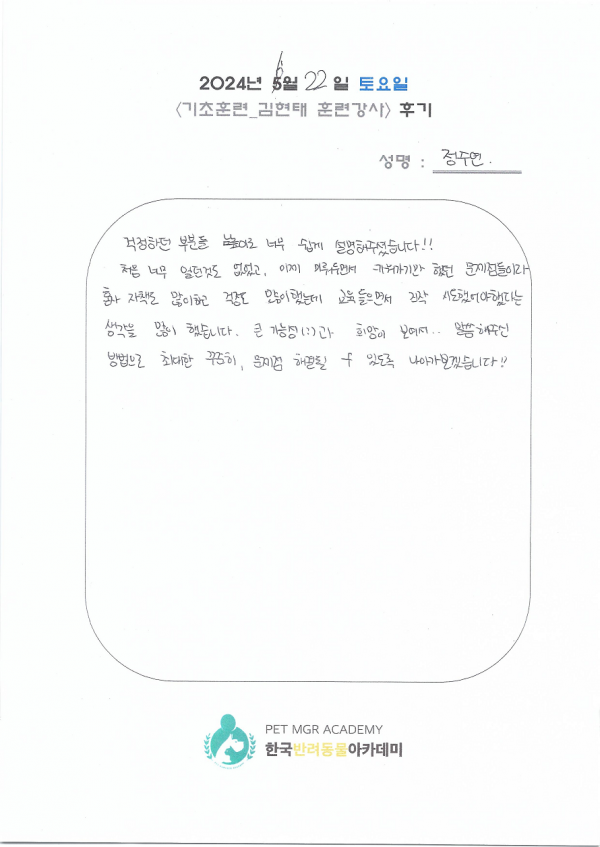 2024년 6월 22일 토요일
<기초훈련_김현태 훈련강사> 후기
성명 : 정주연.
걱정하던 부분들 너무 쉽게 설명해주셨습니다!!
처음 너무 었고, 이제 키워가기만 했던 문제점들이라
혼자 자책도 많이하고 걱정도 많이했는데 교육 들으면서 진작 시도했어야했다는
생각을 많이 했습니다. 큰 가능성(?)과 희망이 보여서.. 말씀해주신
방법으로 최대한 꾸준히, 문제점 해결될 수 있도록 나아가보겠습니다!!
PET MGR ACADEMY
한국반려동물아카데미